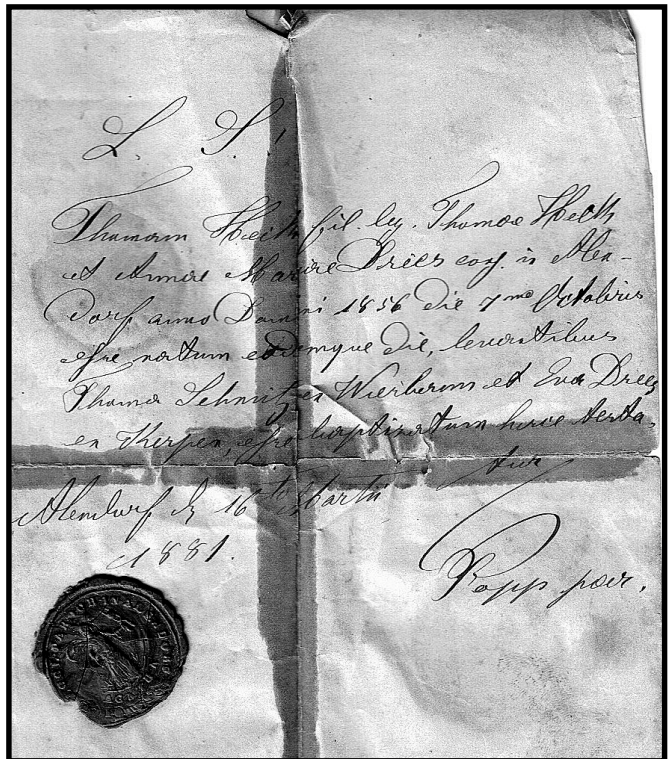 L. S.
Thomam Heith fil. leg. Thomae Heith
et Annae Mariae Drees conj. in Alen-
dorf anno Domini 1856 die 7ma Octobris
esse natum eodemque die, levantibus
Thoma Schnitzen Wiesbaum et Eva Drees
ex Kerpen, esse baptizatum hisce testa-
tur
Alendorf d 16 Martii
1881.
Popp par.